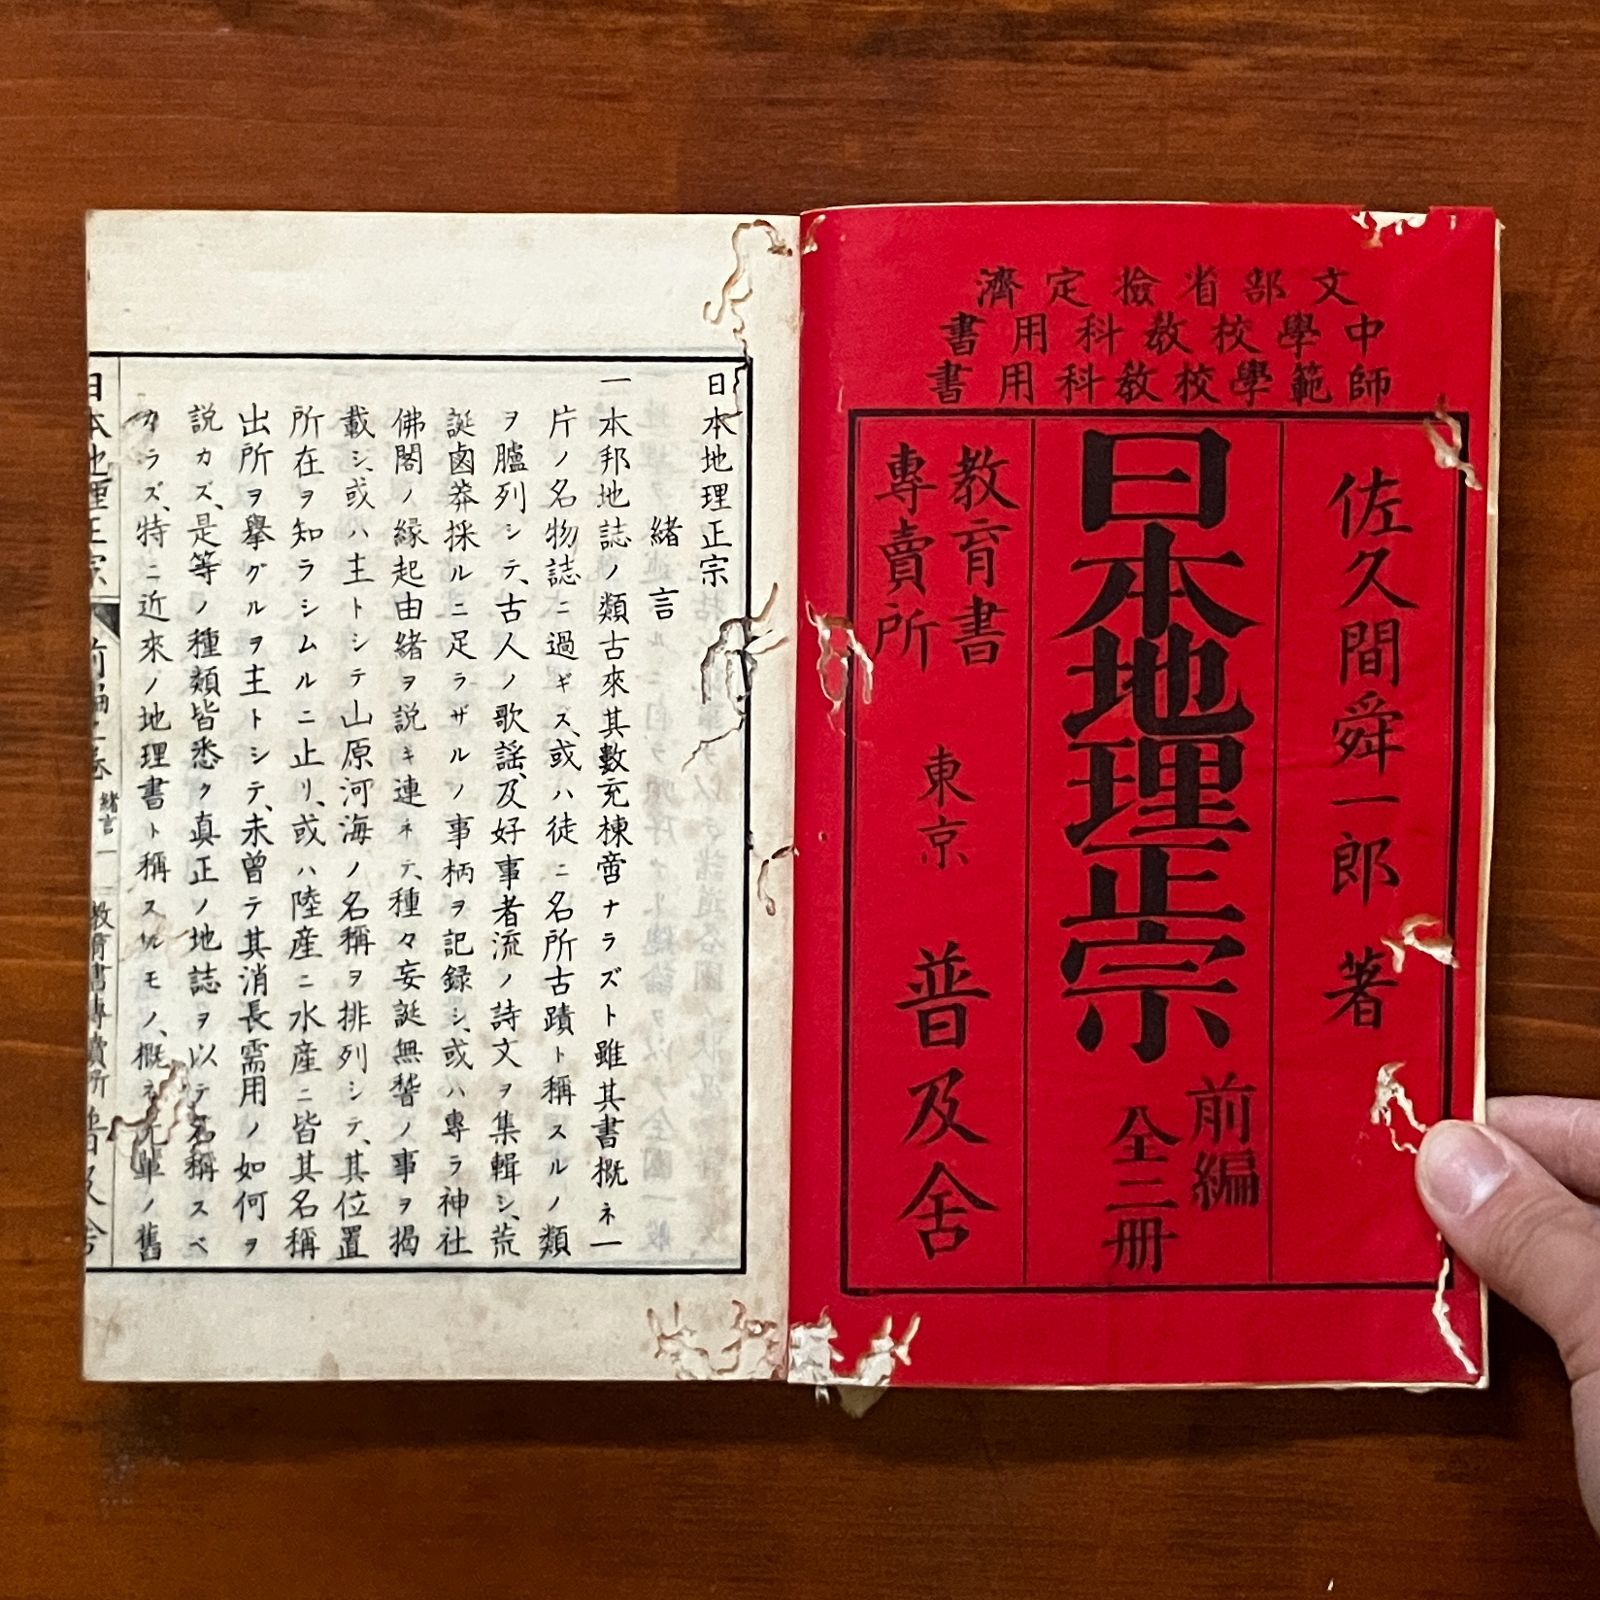 文部省檢定濟
中學校敎科用書
師範學校敎科用書
佐久間舜一郎 著
日本地理正宗
前編
全二冊
敎育書
專賣所
東京 普及舍
日本地理正宗
緒言
一本邦地誌ノ類古來其數充棟啻ナラズト雖其書概ネ一
片ノ名物誌ニ過ギズ、或ハ徒ニ名所古蹟ト稱スルノ類
ヲ臚列シテ、古人ノ歌謡、及好事者流ノ詩文ヲ集輯シ、荒
誕鹵莽採ルニ足ラザルノ事柄ヲ記録シ、或ハ專ラ神社
佛閣ノ縁起由緒ヲ説キ連ネテ、種々妄誕無稽ノ事ヲ揭
載シ、或ハ主トシテ山原河海ノ名稱ヲ排列シテ、其位置
所在ヲ知ラシムルニ止リ、或ハ陸産ニ水産ニ皆其名稱
出所ヲ擧グルヲ主トシテ、未曾テ其消長需用ノ如何ヲ
説カズ、是等ノ種類皆悉ク真正ノ地誌ヲ以テ名稱スベ
カラズ、特ニ近來ノ地理書ト稱スルモノ、概ネ先輩ノ舊
日本地理正宗 前編上巻 緒言 一 敎育書專賣所普及舍